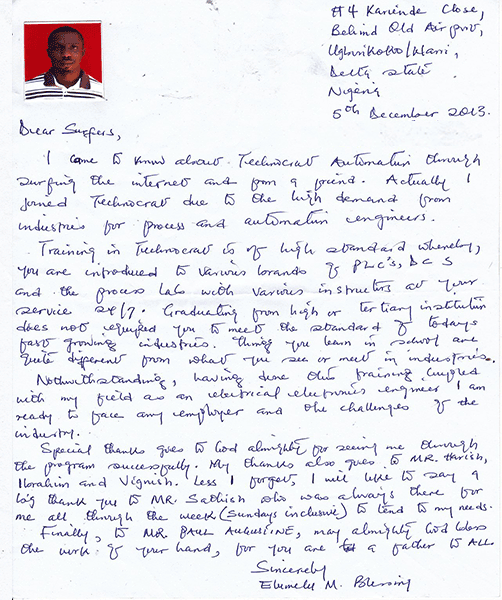 #4 Karinde Close,
Behind Old Airport,
Ugbuwikoko/Warri,
Delta State
Nigeria
5th December 2013.
Dear Surfers,
I came to know about Technocrat Automation through
surfing the internet and from a friend. Actually I
joined Technocrat due to the high demand from
industries for process and automation engineers.
Training in Technocrat is of high standard whereby,
you are introduced to various brands of PLC's, DCS
and the process lab with various instructors at your
service 24/7. Graduating from high or tertiary institution
does not equiped you to meet the standard of todays
fast growing industries. Things you learn in school are
quite different from what you see or meet in industries.
Nothwithstanding, having done this training coupled
with my field as an electrical electronics engineer I am
ready to face any employer and the challenges of the
industry.
Special thanks goes to God almighty for seeing me through
the program successfully. My thanks also goes to MR. Harish,
Ibrahim and Vignesh. Less I forget, I will like to say a
big thank you to MR. Sathish who was always there for
me all through the week (Sundays inclusive) to tend to my needs.
Finally, to MR. PAUL AUGUSTINE, may almighty God bless
the work of your hand, for you are a father to ALL
Sincerely
Elumelu M. Blessing